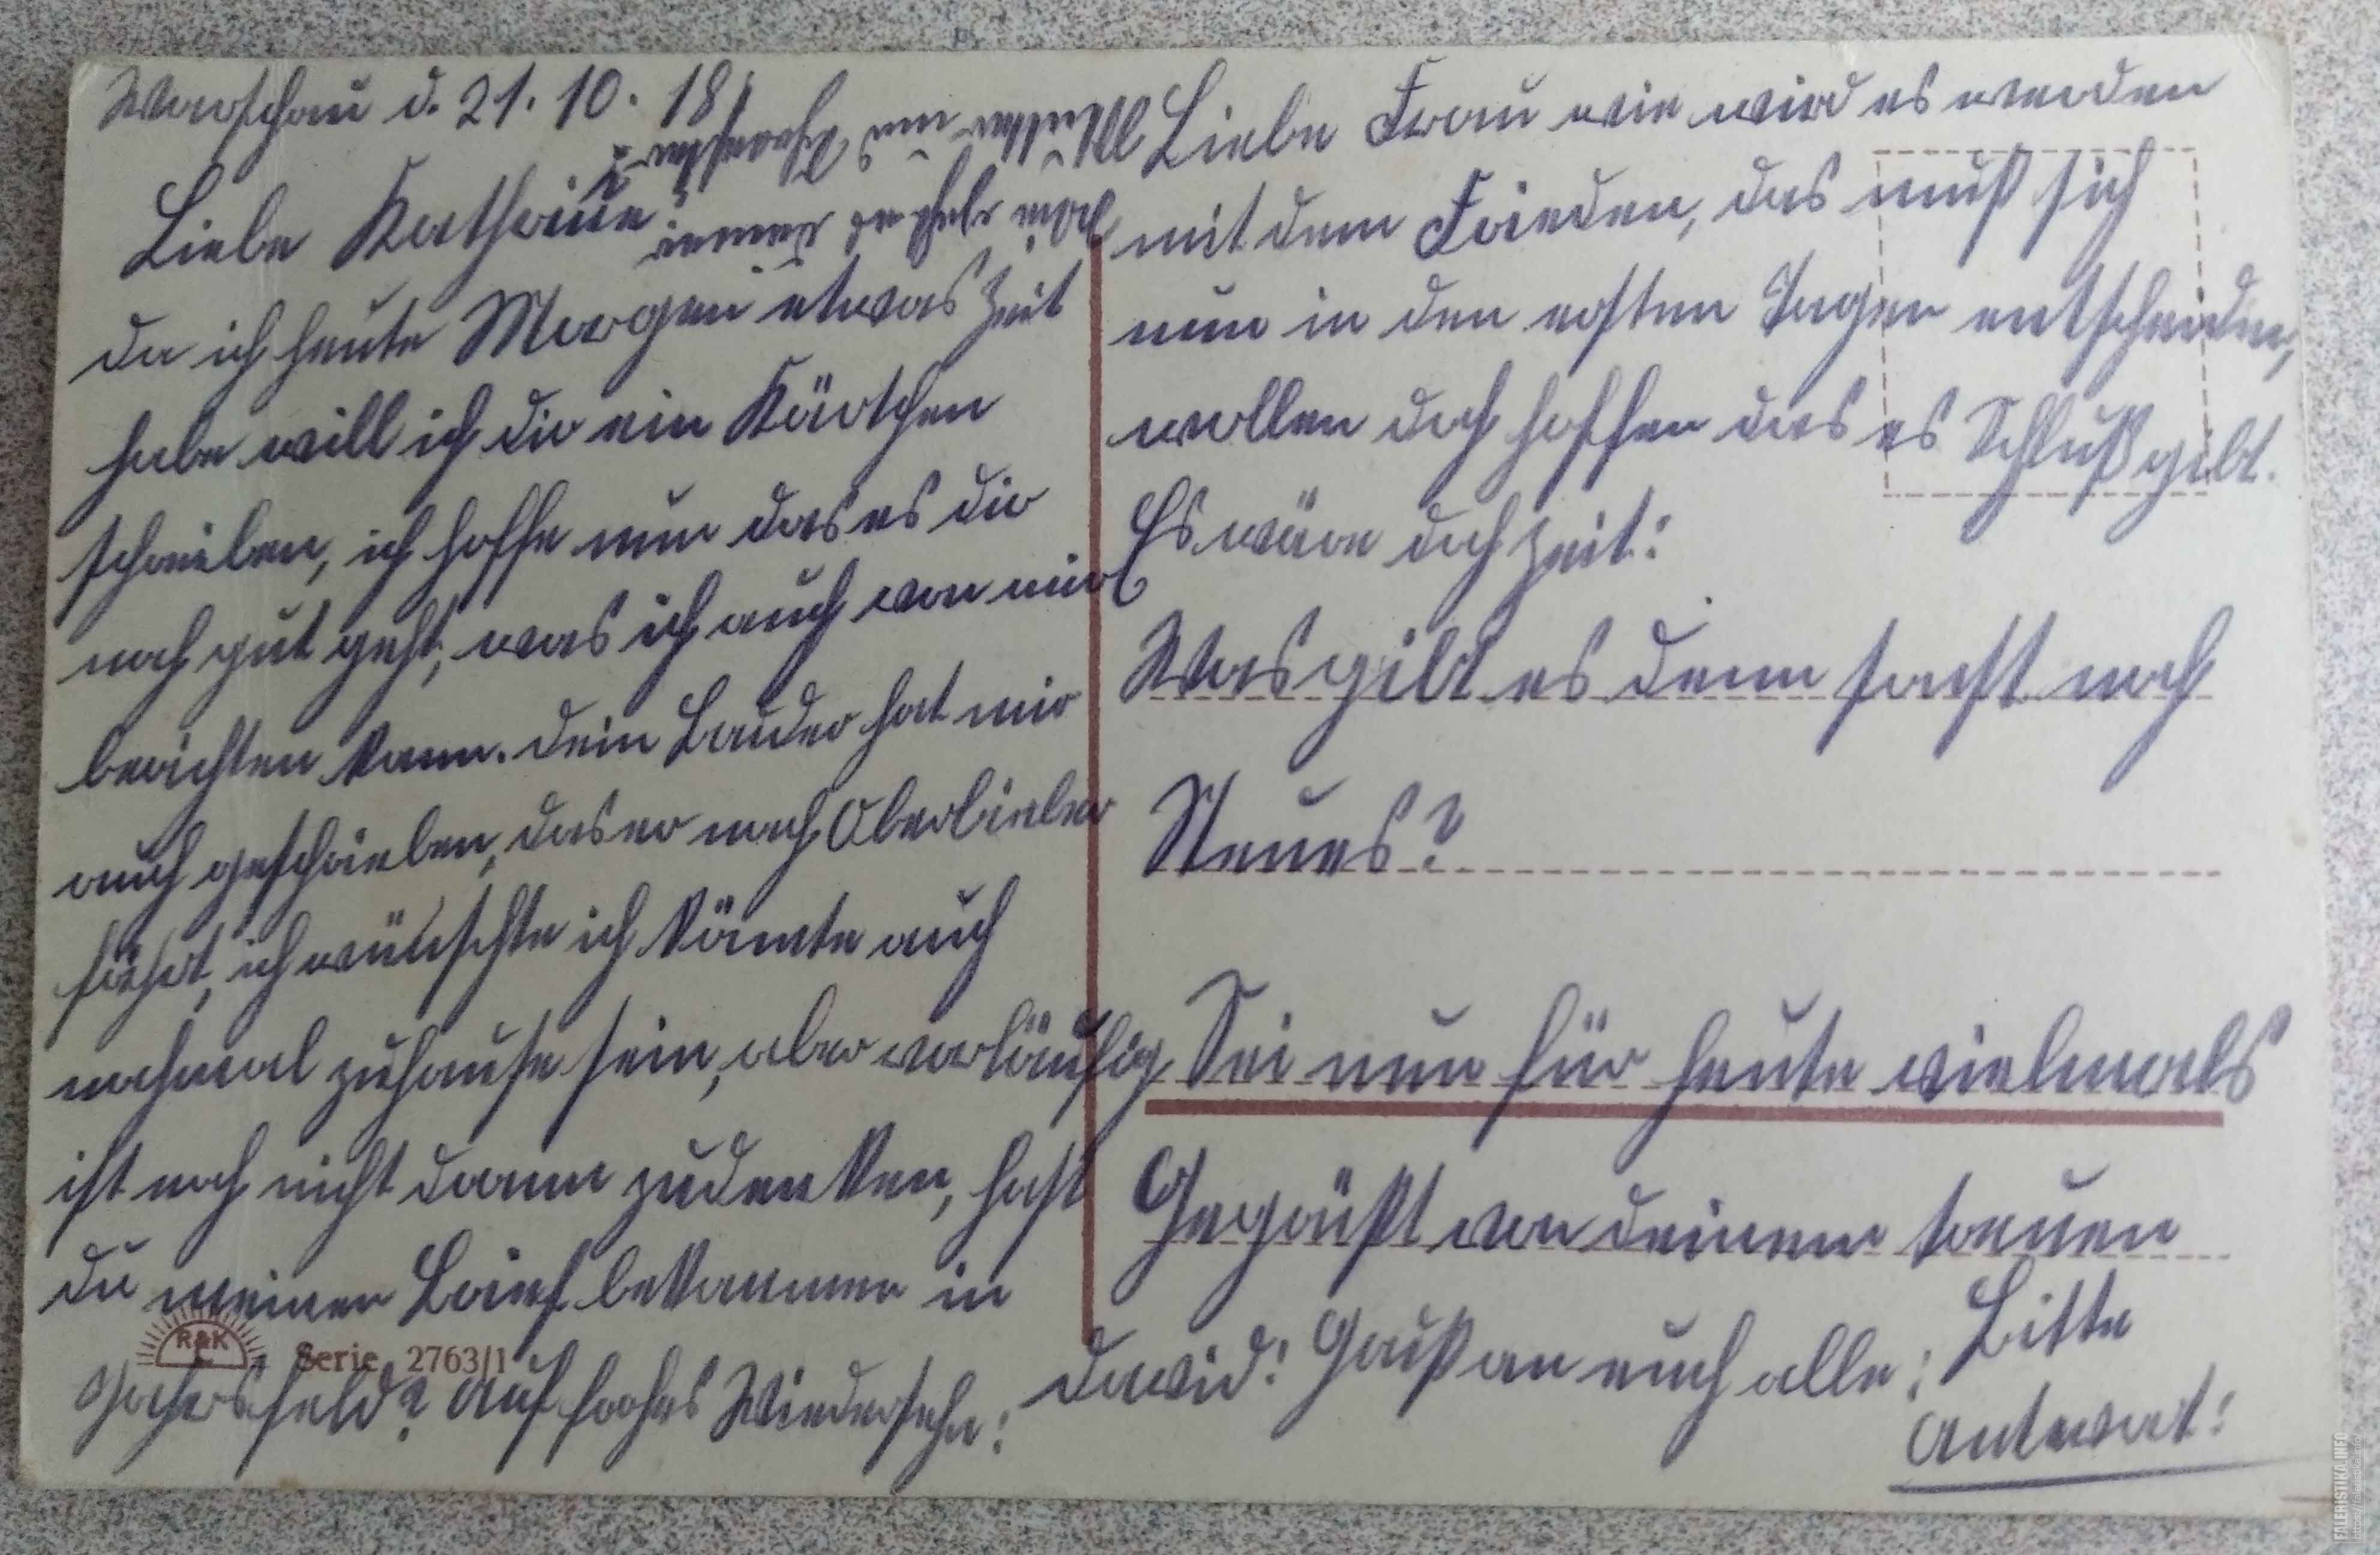 Warschau d. 21. 10. 18.
Liebe Kathrine
da ich heute Morgen etwas Zeit
habe will ich dir ein Kärtchen
schreiben, ich hoffe nun das es dir
noch gut geht, was ich auch von mir
berichten kann. Dein Bruder hat mir
auch geschrieben, das er nach Oberbieber
fährt, ich wünschte ich könnte auch
nochmal zuhause sein, aber vorläufig
ist noch nicht daran zudenken, hast
du meinen Brief bekommen in
feld? Auf frohes Wiedersehn!
Liebe Frau wie wird es werden
mit dem Frieden, das muß sich
nun in den ersten Tagen entscheiden,
wollen doch hoffen das es Schluß gibt.
Es wäre doch Zeit!
Was gibt es denn sonst noch
Neues?
Sei nun für heute vielmals
Gegrüßt von deinem treuen
David! Gruß an euch alle!
Bitte
Antwort!
Wie geht es immer
Mutter und Schwester?
R&K
Serie 2763/1
FALERISTIKA.INFO